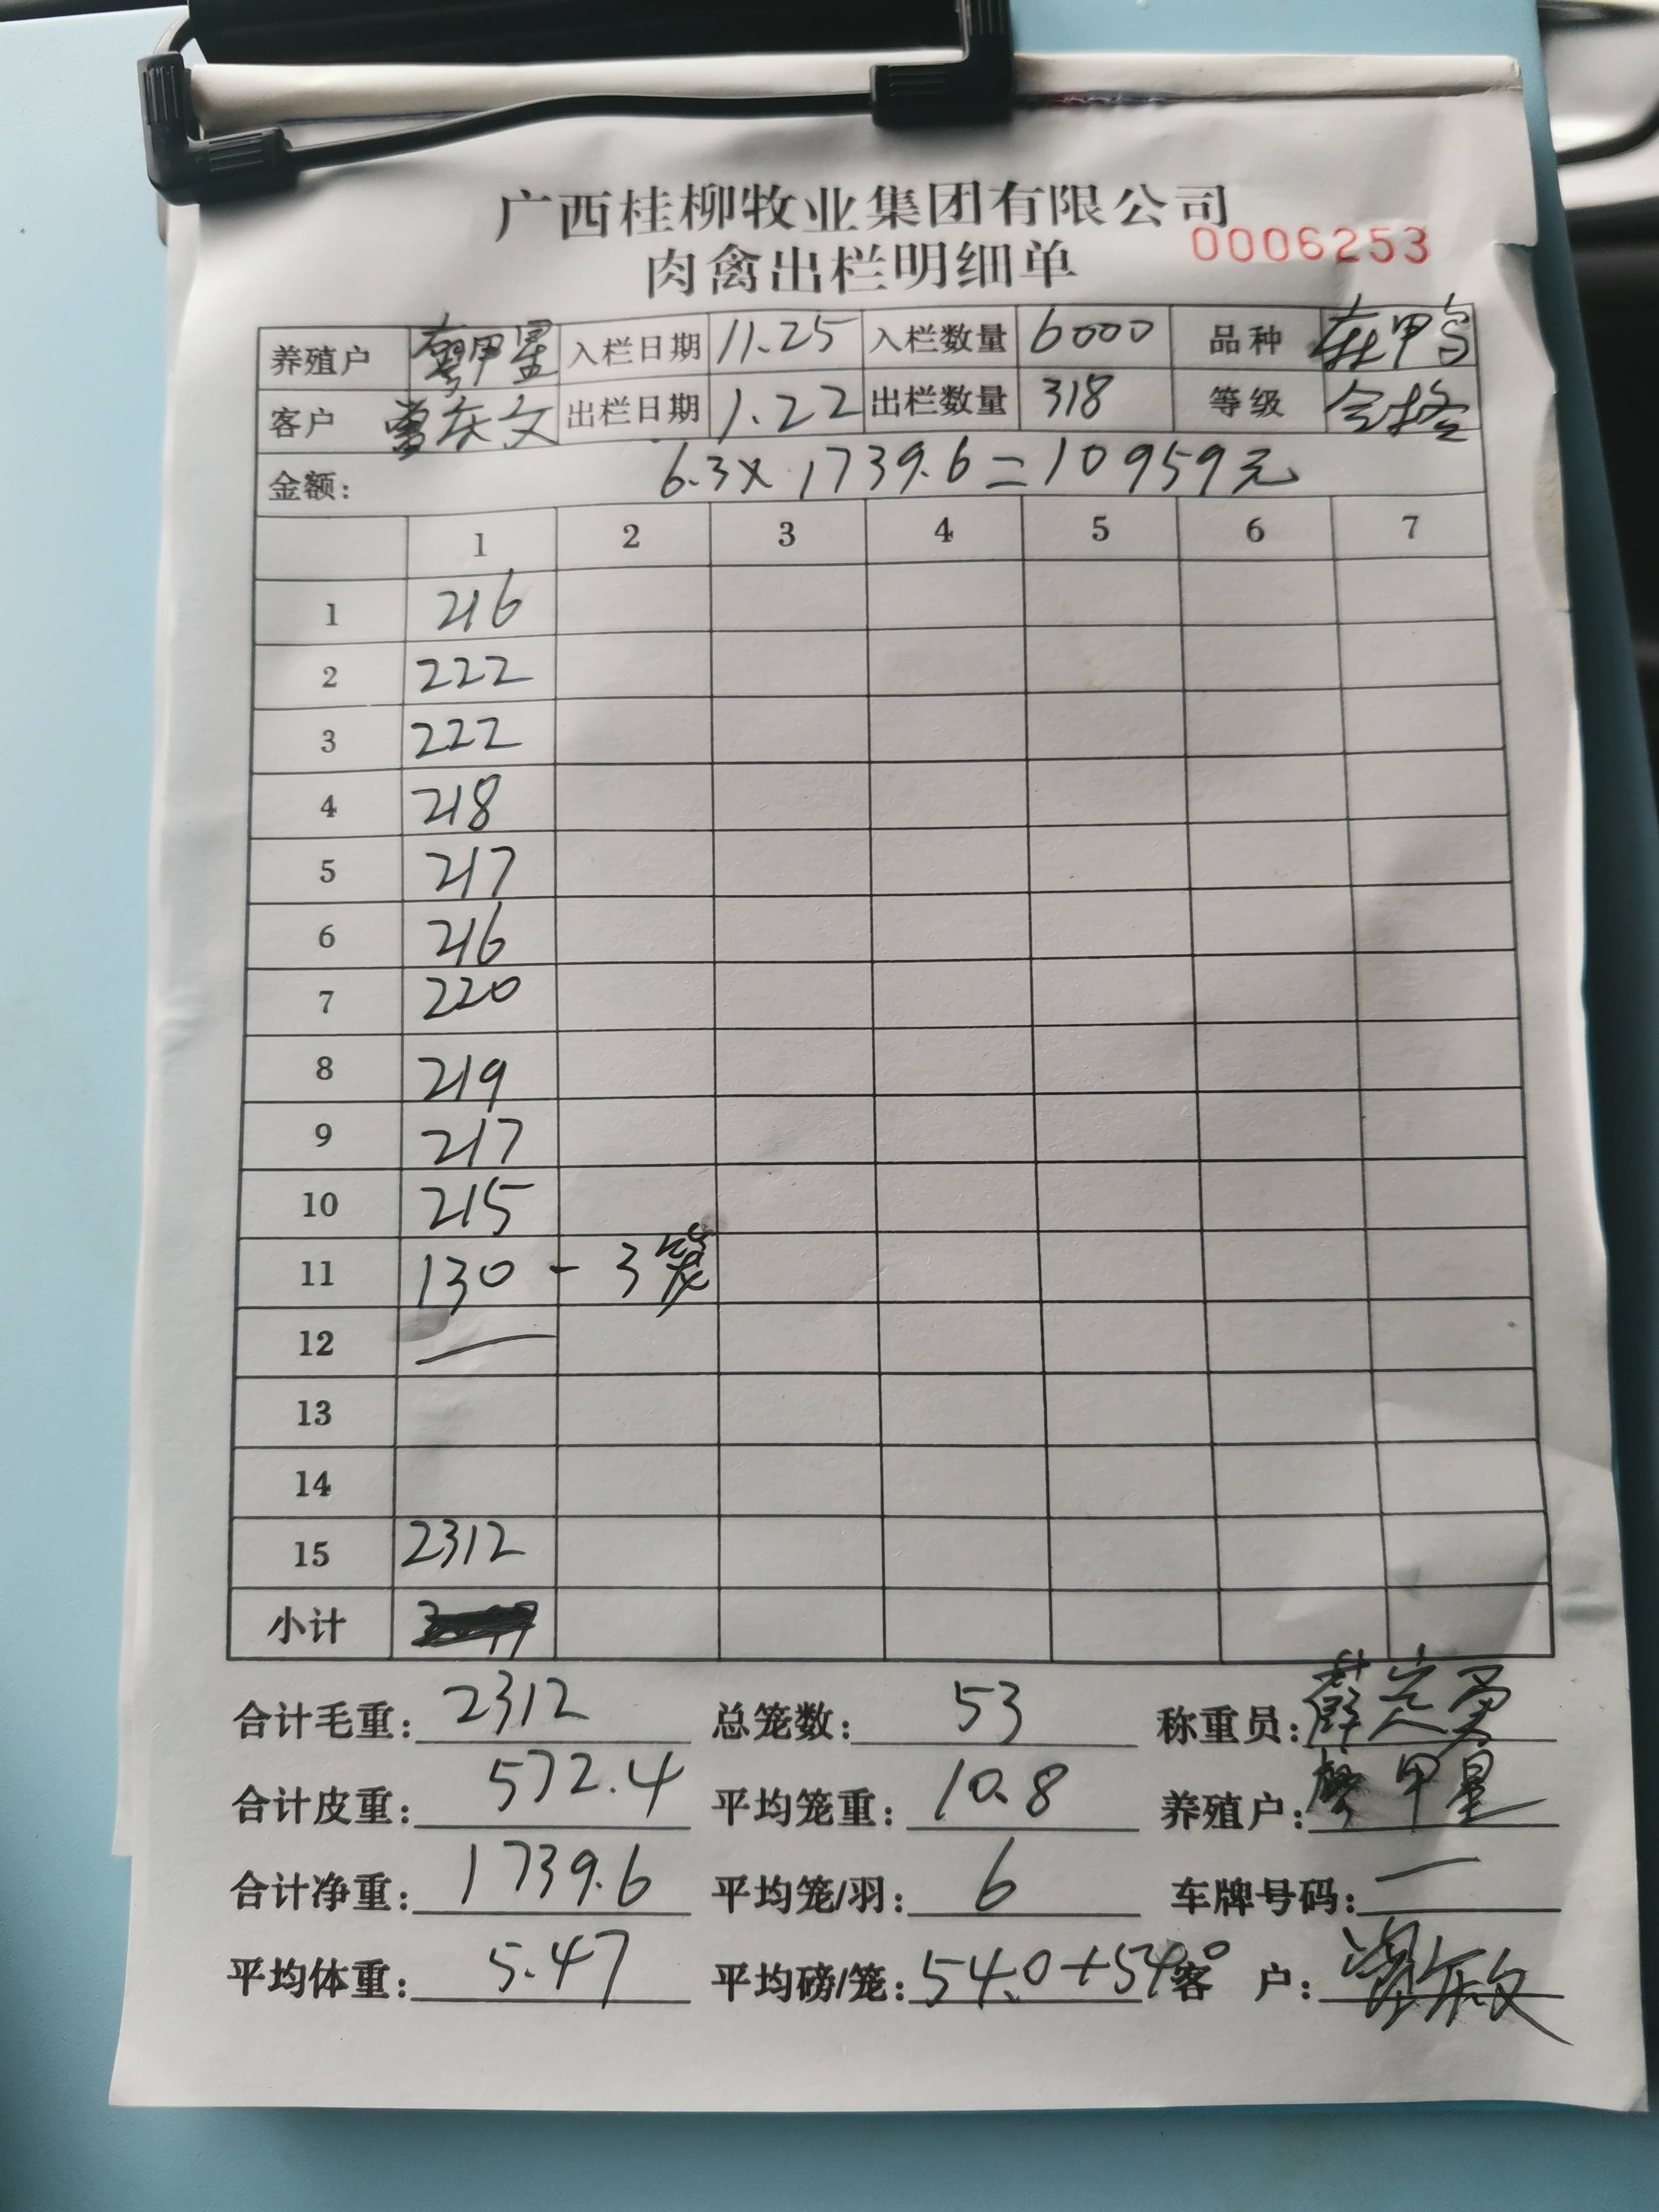 广西桂柳牧业集团有限公司
肉禽出栏明细单 0006253
养殖户 甲星 入栏日期 11.25 入栏数量 6000 品种
客户 曾庆文 出栏日期 1.22 出栏数量 318 等级 合格
金额: 6.3×1739.6=10959元
1 2 3 4 5 6 7
1 216
2 222
3 222
4 218
5 217
6 216
7 220
8 219
9 217
10 215
11 130 - 3笼
12 —
13
14
15 2312
小计
合计毛重: 2312 总笼数: 53 称重员:
合计皮重: 572.4 平均笼重: 10.8 养殖户: 甲星
合计净重: 1739.6 平均笼/羽: 6 车牌号码: —
平均体重: 5.47 平均磅/笼: 54.0+54.0 客 户: